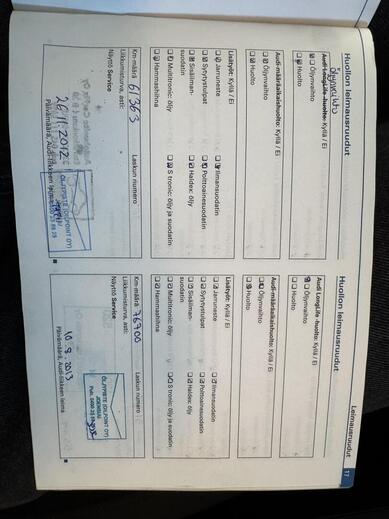 Leimausruudut 17
Huollon leimausruudut
Audi LongLife-huolto: Kyllä / Ei
Öljynvaihto
Huolto
Audi-määräaikaishuolto: Kyllä / Ei
Öljynvaihto
Huolto
Lisätyöt: Kyllä / Ei
Jarruneste
Ilmansuodatin
Sytytystulpat
Polttoainesuodatin
Sisäilman-
suodatin
Haldex: öljy
Multitronic: öljy
S tronic: öljy ja suodatin
Hammashihna
Km-määrä 61363
Laskun numero
Liikkumisturva, asti:
Näyttö Service
26.11.2012
ÖLJYPISTE (OILPOINT OY)
Päivämäärä, Audi-liikkeen leima
Huollon leimausruudut
Audi LongLife-huolto: Kyllä / Ei
Öljynvaihto
Huolto
Audi-määräaikaishuolto: Kyllä / Ei
Öljynvaihto
Huolto
Lisätyöt: Kyllä / Ei
Jarruneste
Ilmansuodatin
Sytytystulpat
Polttoainesuodatin
Sisäilman-
suodatin
Haldex: öljy
Multitronic: öljy
S tronic: öljy ja suodatin
Hammashihna
Km-määrä 76900
Laskun numero
Liikkumisturva, asti:
Näyttö Service
ÖLJYPISTE (OILPOINT OY)
JOENSUU
Päivämäärä, Audi-liikkeen leima